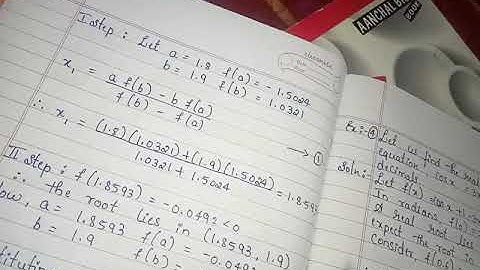 AANCHAL
BOOK
I Step : Let a = 1.8 f(a) = -1.5024
b = 1.9 f(b) = 1.0321
x₁ = a f(b) - b f(a) / f(b) - f(a) → ①
∴ x₁ = (1.8)(1.0321)+(1.9)(1.5024) / 1.0321 + 1.5024 = 1.8593
II Step : f(1.8593) = -0.0492 < 0
∴ the root lies in (1.8593, 1.9)
Now, a = 1.8593 f(a) = -0.049
b = 1.9 f(b) =
Ex:- ④ Let us find the real
equation cos x
decimals.
Soln:- Let f(x) =
In radians f(0)
A real root lies
expect the root in
Consider f(0.6)